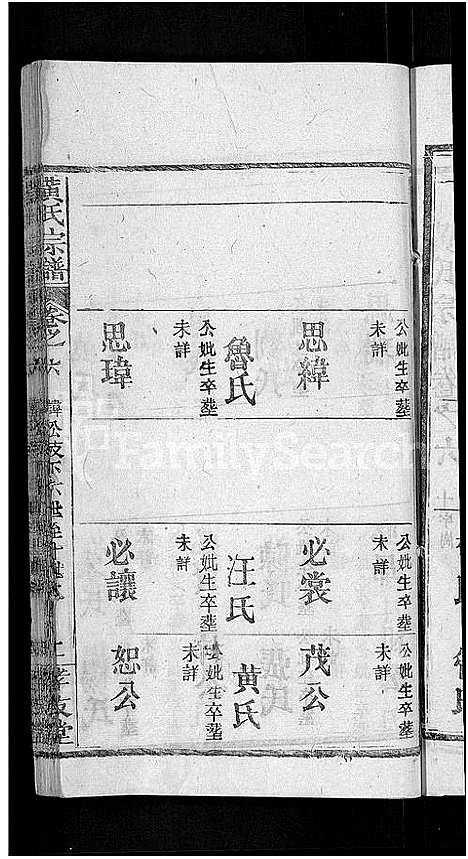 公妣生卒塟
未詳
思緯
魯氏
公妣生卒塟
未詳
思瑋
公妣生卒塟
未詳
必裳
汪氏
公妣生卒塟
未詳
必讓
公妣生卒塟
未詳
茂公
黃氏
公妣生卒塟
未詳
恕公
黃氏宗譜
卷之六
FamilySearch